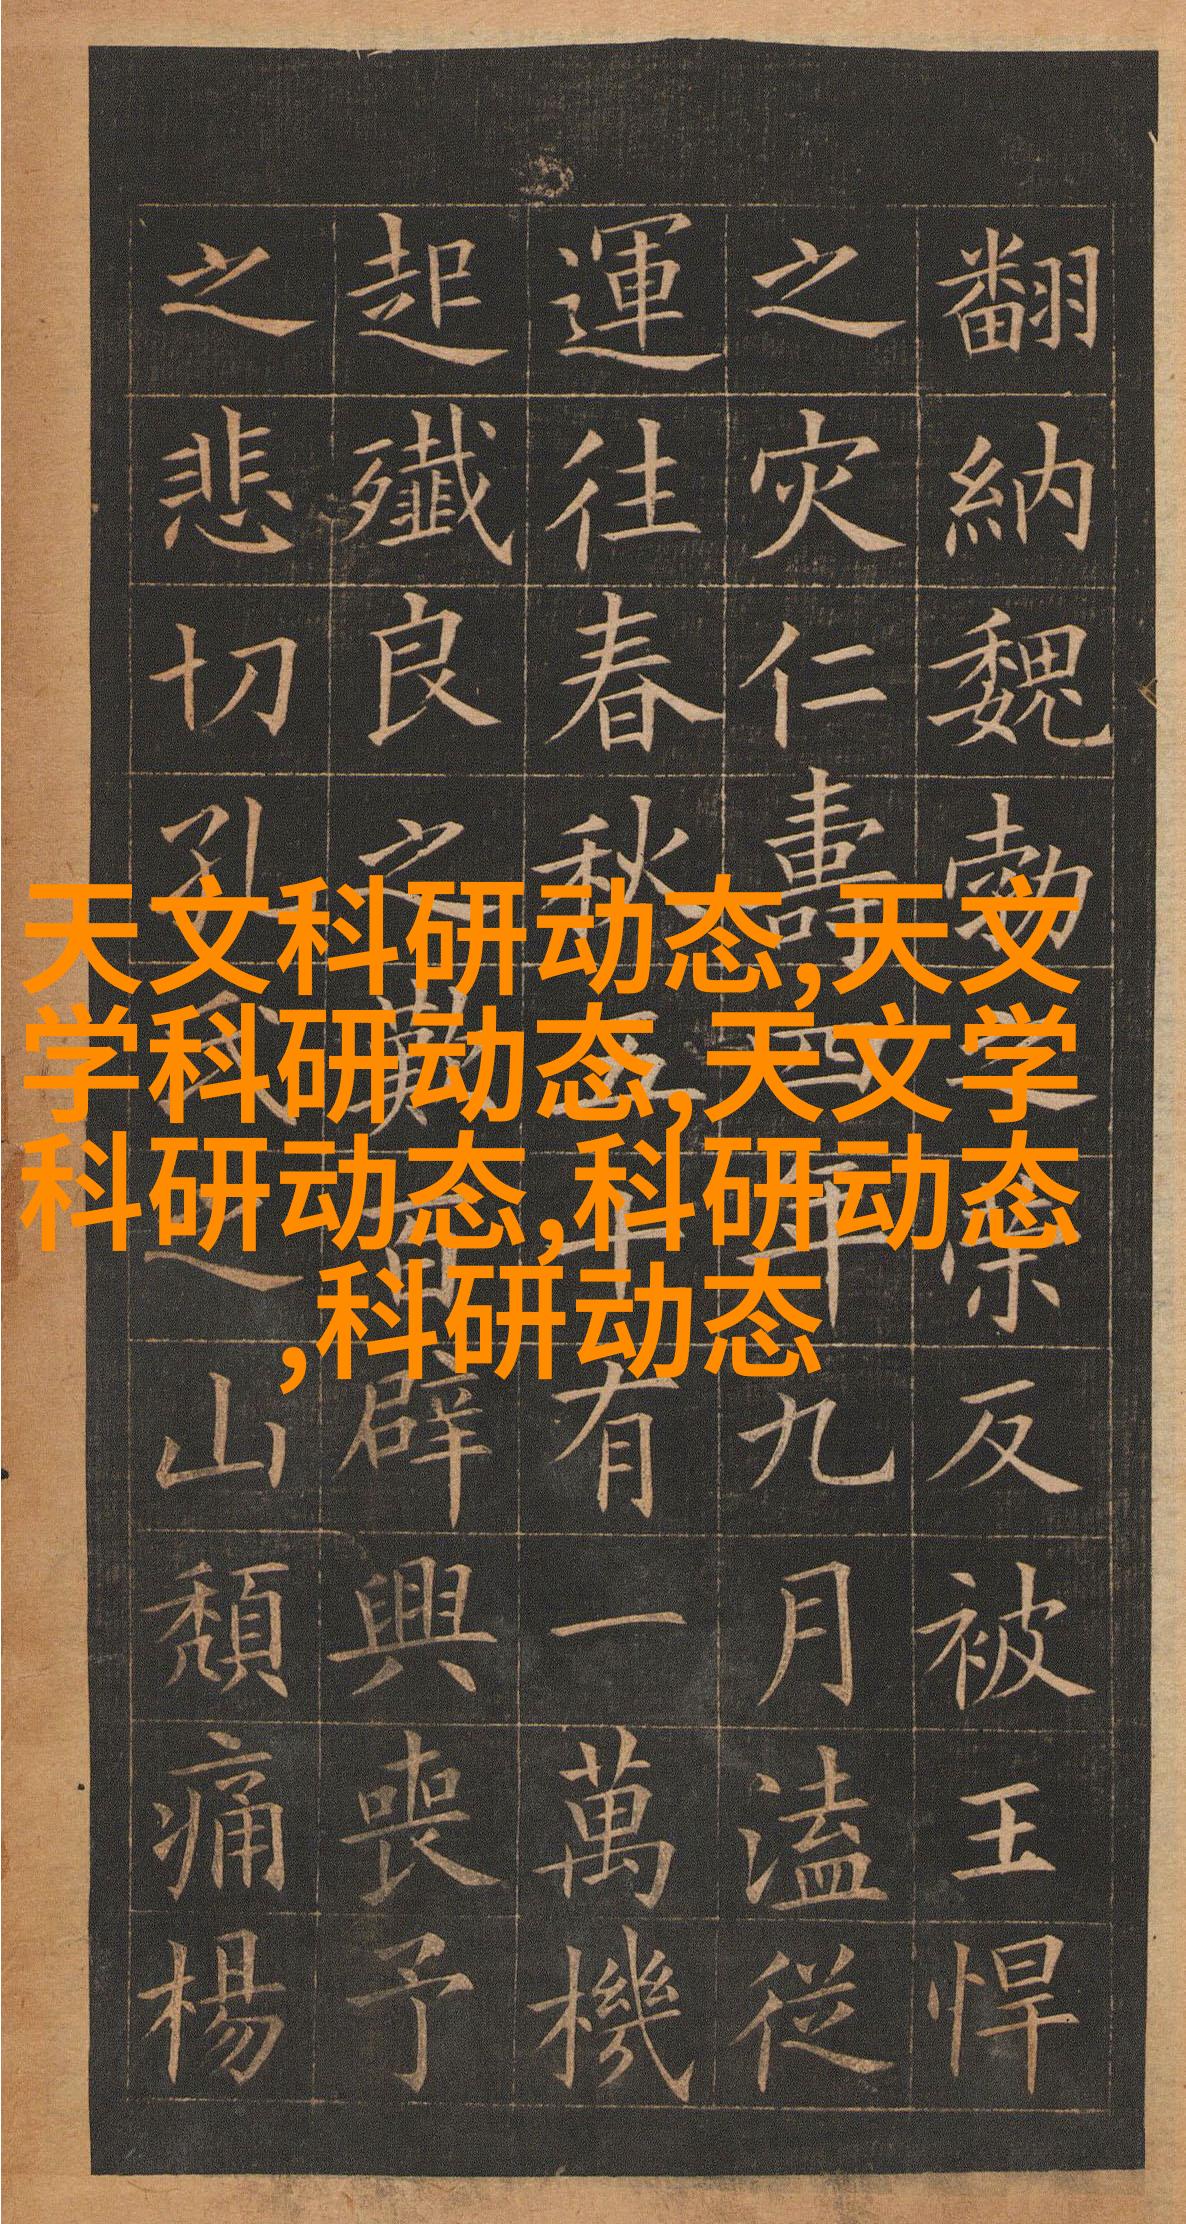 天文科研动态,天文
学科研动态,天文学
科研动态,科研动态
,科研动态
翻納魏勃之反被王悍
之灾仁壽四年九月溘從
運往春秋五十有一萬機
起殲良之歎百辟興喪予
之悲切孔氏之山頹痛楊